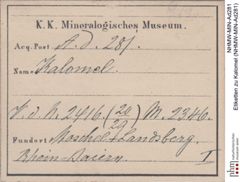 K. K. Mineralogisches Museum.
Acq. Post. A. d. 281.
Name Kalomel.
V. d. N. 2416. (28/29) M. 2346.
Fundort Moschel-Landsberg.
Rhein-Baiern. I
NHMW-MIN-Ad281
Etiketten zu Kalomel (NHMW-MIN-Ad281)
nhm